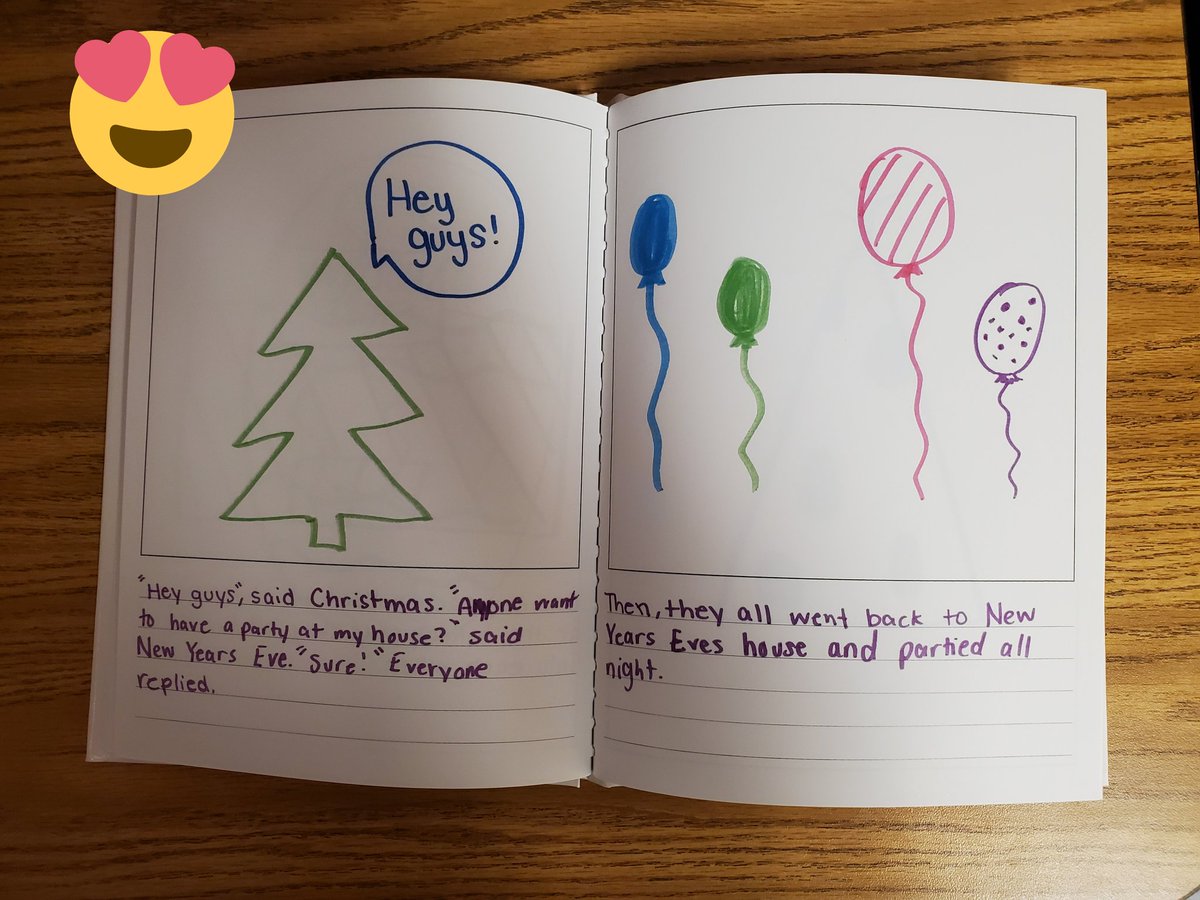 Hey
guys!
"Hey guys", said Christmas. "Anyone want
to have a party at my house?" said
New Years Eve. "Sure!" Everyone
replied.
Then, they all went back to New
Years Eves house and partied all
night.